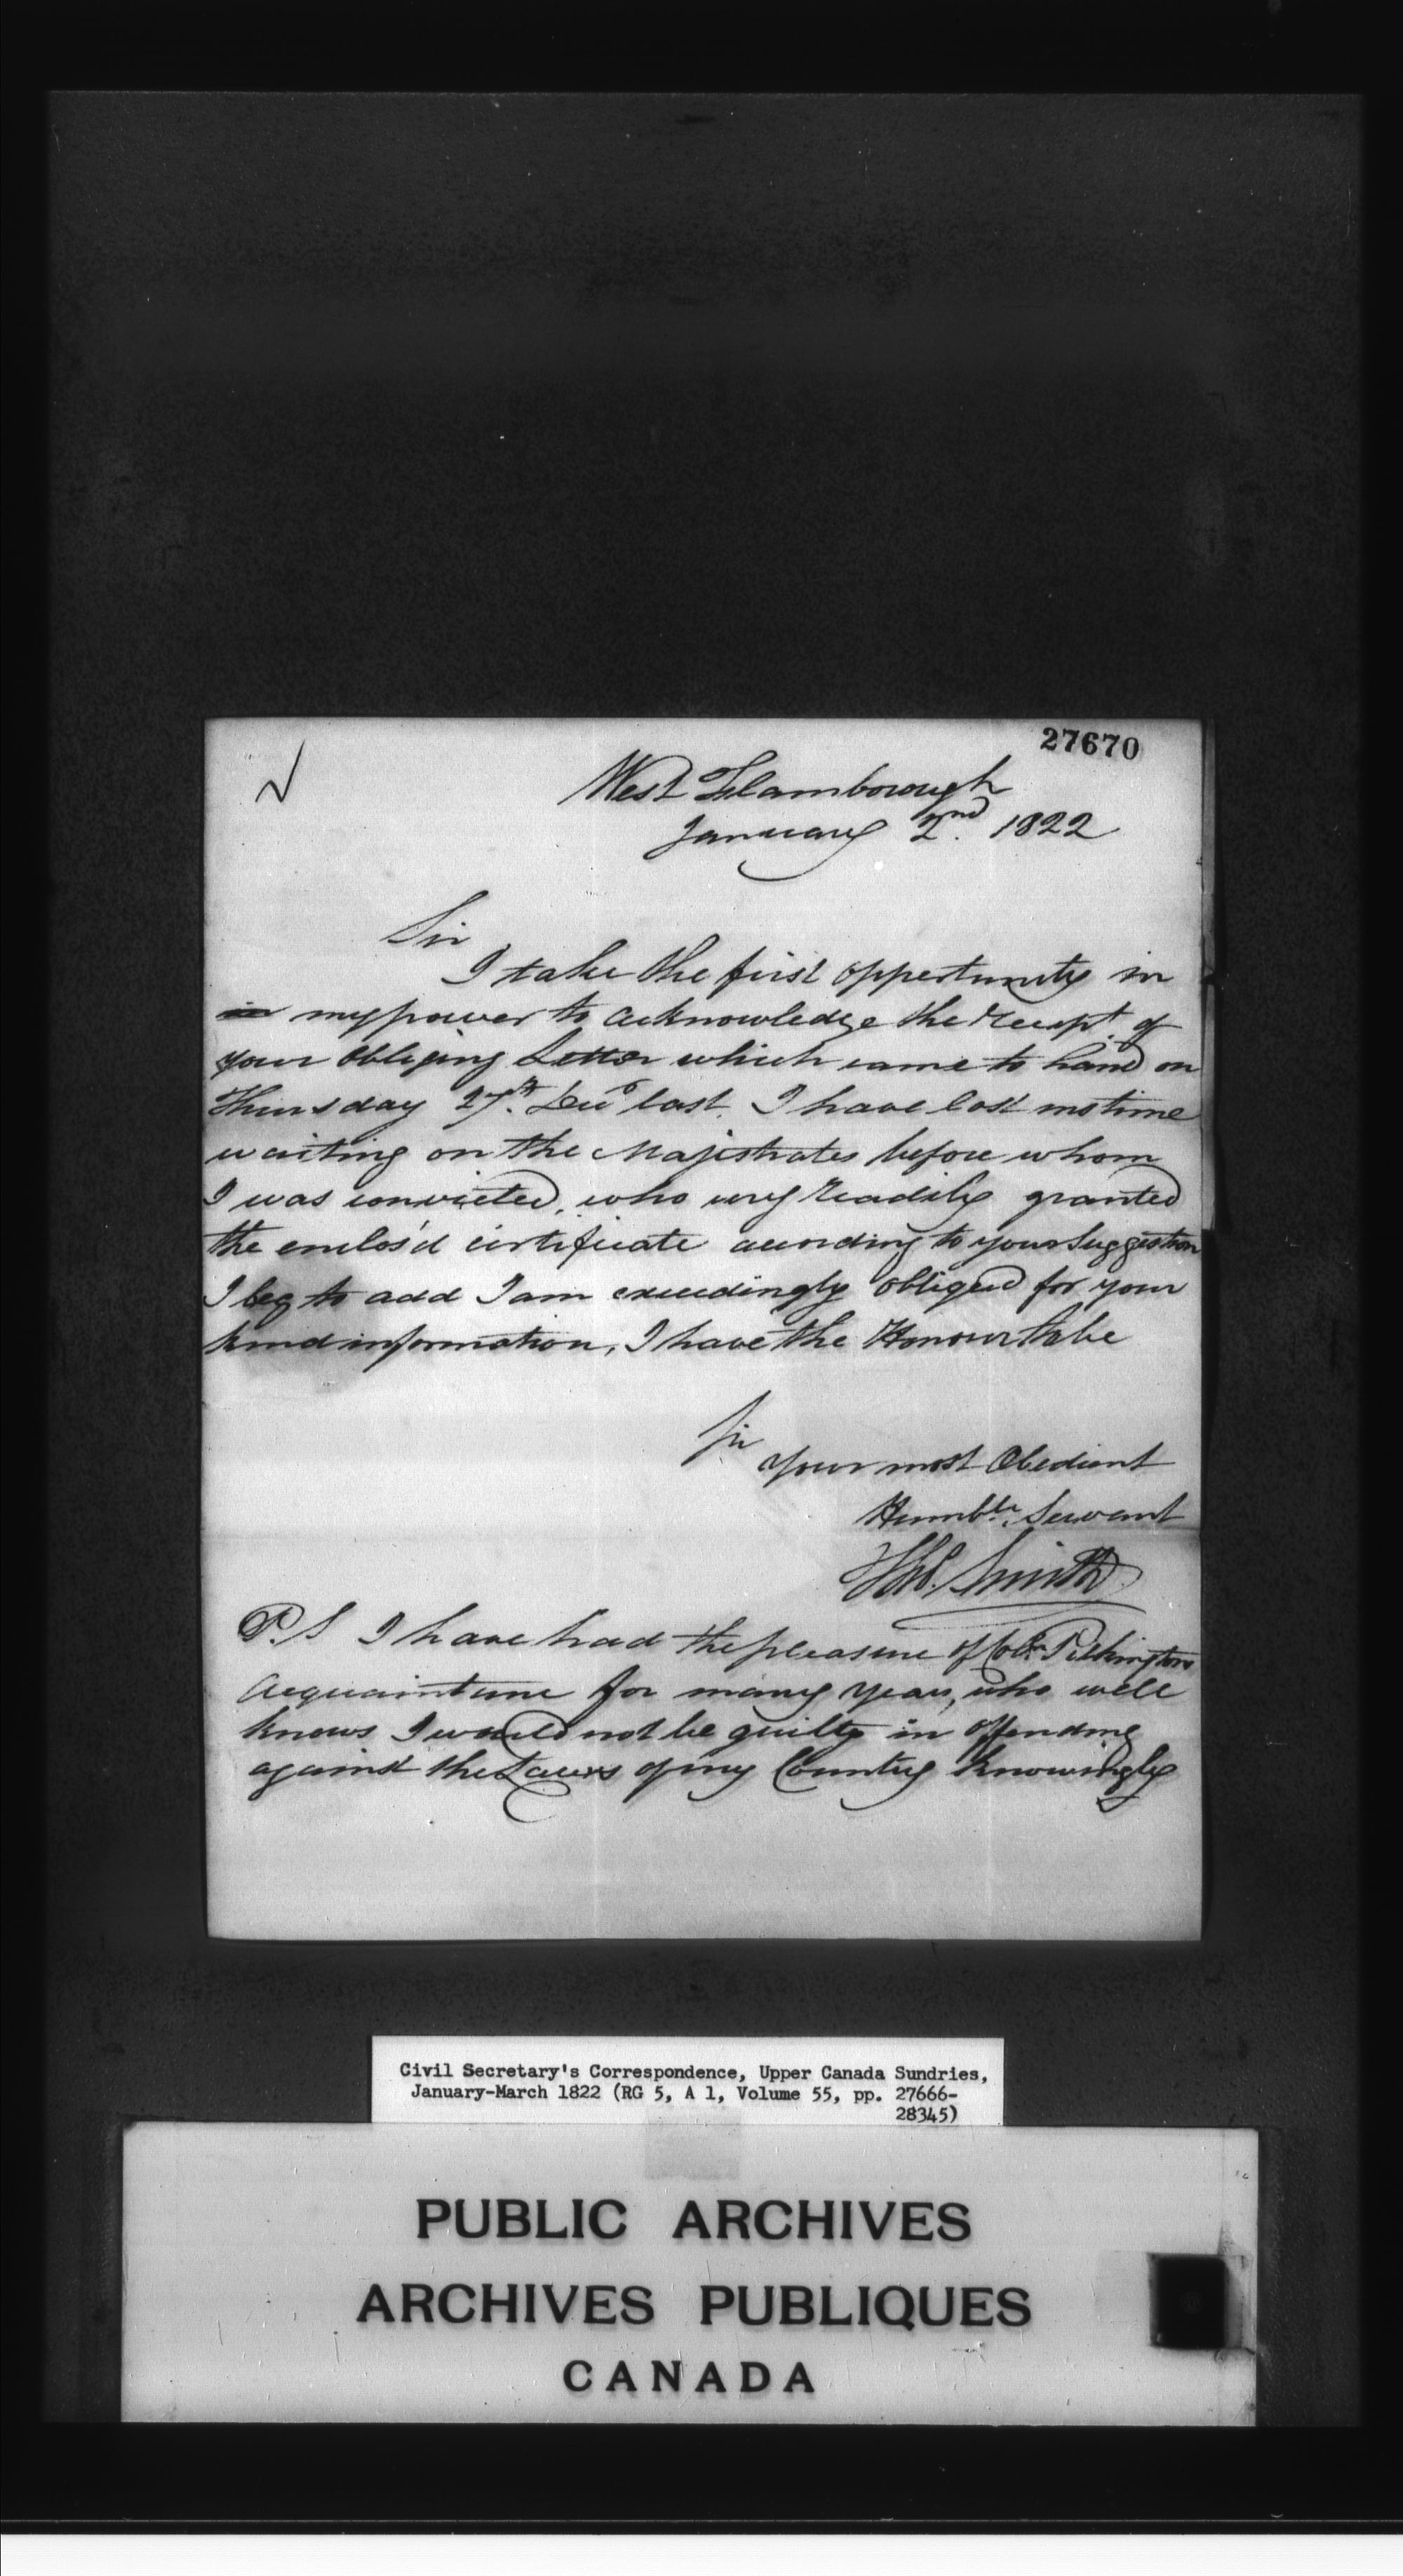 27670
West Flamborough
January 2nd. 1822
Sir
I take the first oppertunity in
in my power to acknowledge the receipt. of
your obliging Letter which came to hand on
Thursday 27th. Decr last. I have lost no time
waiting on the Majistrates before whom
I was convicted, who very readily granted
the enclos'd certificate according to your Suggestion
I beg to add I am exceedingly obliged for your
kind information, I have the Honour to be
Sir
your most Obedient
Humble. Servant
Thos. Smith
P.S I have had the pleasure of Coln. Pilkingtons
Acquaintance for many years, who well
knows I would not be guilty in offending
against the Laws of my Country knowingly
Civil Secretary's Correspondence, Upper Canada Sundries,
January-March 1822 (RG 5, A 1, Volume 55, pp. 27666-
28345)
PUBLIC ARCHIVES
ARCHIVES PUBLIQUES
CANADA